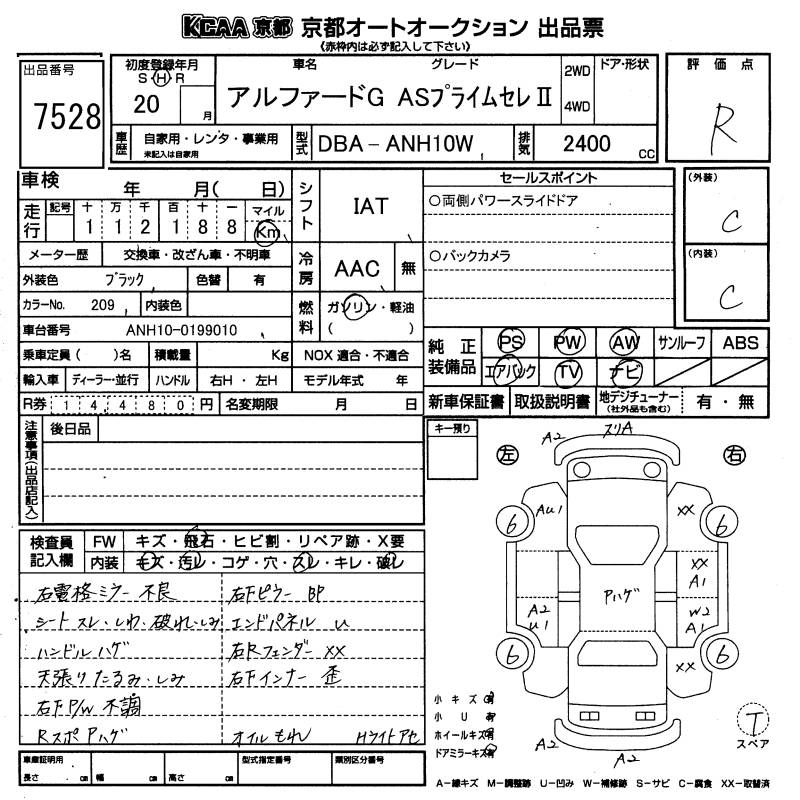 KCAA 京都 京都オートオークション 出品票
《赤枠内は必ず記入して下さい》
出品番号
7528
初度登録年月
S・H・R
20
月
車名
グレード
アルファードG ASプライムセレⅡ
2WD
4WD
ドア・形状
評価点
R
車歴
自家用・レンタ・事業用
未記入は自家用
型式
DBA－ANH10W
排気
2400
CC
車検
年 月( 日)
走行
記号
十 万 千 百 十 一
1 1 2 1 8 8
マイル
Km
シフト
IAT
セールスポイント
○両側パワースライドドア
○バックカメラ
(外装)
C
(内装)
C
メーター歴
交換車・改ざん車・不明車
冷房
AAC
無
外装色
ブラック
色替
有
カラーNo.
209
内装色
燃料
ガソリン・軽油
( )
車台番号
ANH10-0199010
純正装備品
PS
PW
AW
サンルーフ
ABS
エアバック
TV
ナビ
乗車定員( )名
積載量
Kg
NOX 適合・不適合
輸入車
ディーラー・並行
ハンドル
右H ・ 左H
モデル年式 年
R券
14,480円
名変期限
月 日
新車保証書
取扱説明書
地デジチューナー
(社外品も含む)
有 ・ 無
注意事項(出品店記入)
後日品
キー預り
検査員記入欄
FW
キズ・飛石・ヒビ割・リペア跡・X要
内装
キズ・汚レ・コゲ・穴・スレ・キレ・破レ
右電格ミラー 不良
右Fピラー BP
シート スレ・しわ・破れ・しみ
エンドパネル U
ハンドル ハゲ
右Rフェンダー XX
天張り たるみ・しみ
右Fインナー 歪
右F P/W 不調
Rスポ Pハゲ
オイルもれ
Hライトアセ
左
右
A2
スリA
6
AU1
XX
6
XX
A1
Pハゲ
A2
U1
W2
A1
6
XX
6
A2
A2
小キズ 有
小U
ホイールキズ 有
ドアミラーキズ 有
T
スペア
車庫証明用
長さ cm
幅 cm
高さ cm
型式指定番号
類別区分番号
A－線キズ M－調整跡 U－凹み W－補修跡 S－サビ C－腐食 XX－取替済